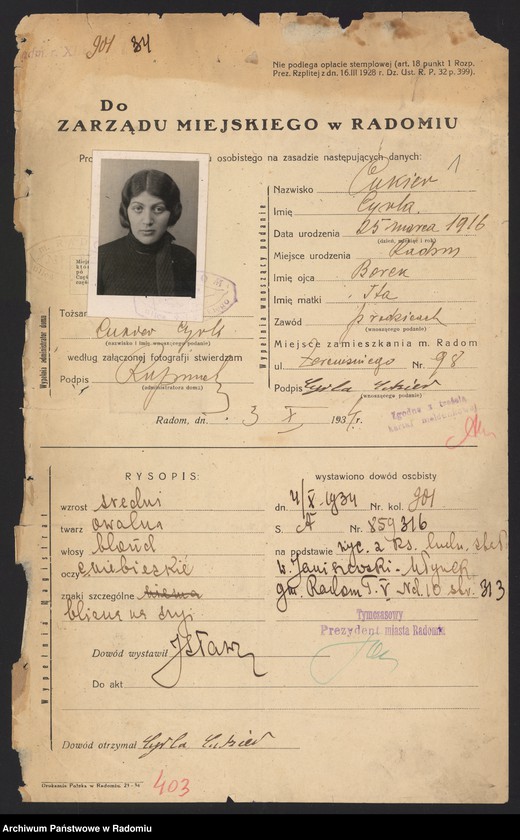 901 84
Nie podlega opłacie stemplowej (art. 18 punkt 1 Rozp.
Prez. Rzplitej z dn. 16.III 1928 r. Dz. Ust. R. P. 32 p. 399).
Do
ZARZĄDU MIEJSKIEGO w RADOMIU
osobistego na zasadzie następujących danych:
Wypełnia wnoszący podanie
Nazwisko Cukier
Imię Cyrla
Data urodzenia 25 marca 1916
(dzień, miesiąc i rok)
Miejsce urodzenia Radom
Imię ojca Berek
Imię matki Ita
Zawód
(wnoszącego podanie)
Miejsce zamieszkania m. Radom
ul. Żeromskiego Nr. 98
Podpis Cyrla Cukier
(wnoszącego podanie)
Wypełnia administrator domu
Cukier Cyrla
(nazwisko i imię wnoszącego podanie)
według załączonej fotografji stwierdzam
Podpis
(administratora domu)
Radom, dn. 3 X 1934 r.
RYSOPIS:
Wypełnia Magistrat
wzrost średni
twarz owalna
włosy blond
oczy niebieskie
znaki szczególne
blizna na szyi
Dowód wystawił
Do akt
wystawiono dowód osobisty
dn. 4/X 1934 Nr. kol. 901
S. A Nr. 859316
na podstawie wyc. z ks. ludn.
w. Janiszewski-Młynek
gm. Radom T. V Nd. 10 str. 313
Tymczasowy
Prezydent miasta Radomia
Dowód otrzymał Cyrla Cukier
Drukarnia Polska w Radomiu.
403
Archiwum Państwowe w Radomiu